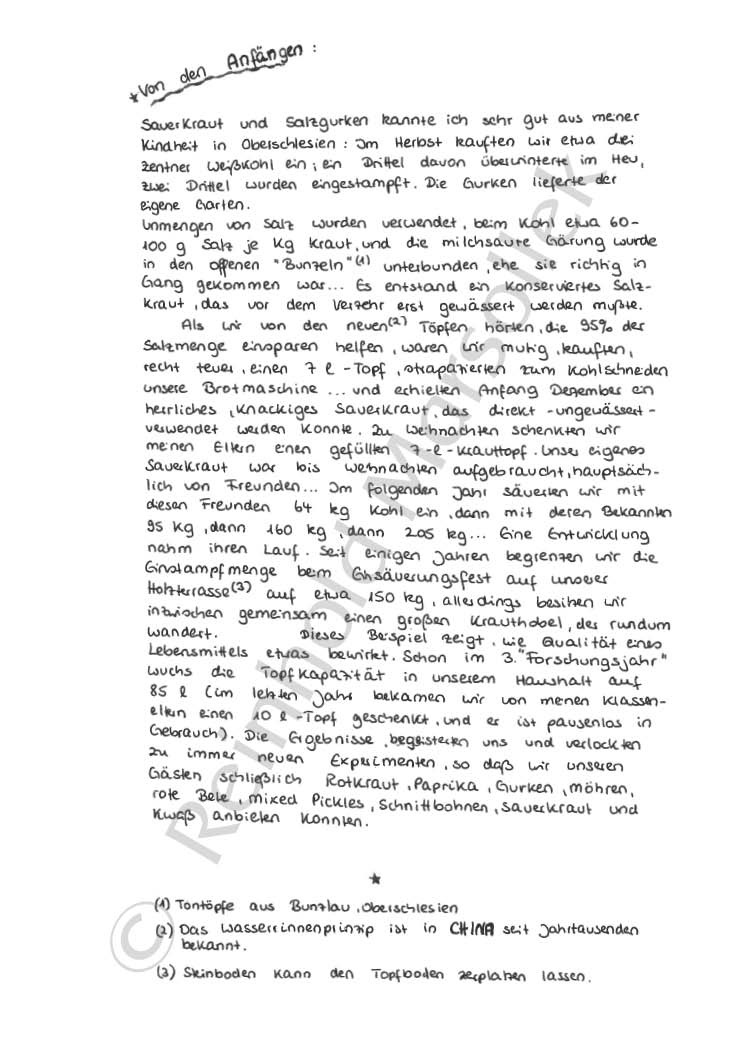 *Von den Anfängen:
Sauerkraut und Salzgurken kannte ich sehr gut aus meiner
Kindheit in Oberschlesien: Im Herbst kauften wir etwa drei
Zentner Weißkohl ein; ein Drittel davon überwinterte im Heu,
zwei Drittel wurden eingestampft. Die Gurken lieferte der
eigene Garten.
Unmengen von Salz wurden verwendet, beim Kohl etwa 60-
100 g Salz je Kg Kraut, und die milchsaure Gärung wurde
in den offenen "Bunzeln"(1) unterbunden, ehe sie richtig in
Gang gekommen war... Es entstand ein konserviertes Salz-
kraut, das vor dem Verzehr erst gewässert werden mußte.
Als wir von den neuen(2) Töpfen hörten, die 95% der
Salzmenge einsparen helfen, waren wir mutig, kauften,
recht teuer, einen 7 l-Topf, strapazierten zum Kohlschneiden
unsere Brotmaschine ... und erhielten Anfang Dezember ein
herrliches, knackiges Sauerkraut, das direkt -ungewässert-
verwendet werden konnte. Zu Weihnachten schenkten wir
meinen Eltern einen gefüllten 7-l-Krauttopf. Unser eigenes
Sauerkraut war bis Weihnachten aufgebraucht, hauptsäch-
lich von Freunden... Im folgenden Jahr säuerten wir mit
diesen Freunden 64 kg Kohl ein, dann mit deren Bekannten
95 Kg, dann 160 kg, dann 205 kg... Eine Entwicklung
nahm ihren Lauf. Seit einigen Jahren begrenzen wir die
Einstampfmenge beim Einsäuerungsfest auf unserer
Holzterrasse(3) auf etwa 150 kg, allerdings besitzen wir
inzwischen gemeinsam einen großen Krauthobel, der rundum
wandert. Dieses Beispiel zeigt, wie Qualität eines
Lebensmittels etwas bewirkt. Schon im 3. "Forschungsjahr"
wuchs die Topfkapazität in unserem Haushalt auf
85 l (im letzten Jahr bekamen wir von meinen Klassen-
eltern einen 10 l-Topf geschenkt, und er ist pausenlos in
Gebrauch). Die Ergebnisse begeisterten uns und verlockten
zu immer neuen Experimenten, so daß wir unseren
Gästen schließlich Rotkraut, Paprika, Gurken, Möhren,
rote Bete, mixed Pickles, Schnittbohnen, Sauerkraut und
Kwaß anbieten konnten.
*
(1) Tontöpfe aus Bunzlau, Oberschlesien
(2) Das Wasserrinnenprinzip ist in CHINA seit Jahrtausenden
bekannt.
(3) Steinboden kann den Topfboden zerplatzen lassen.
© Reinhold Marsollek